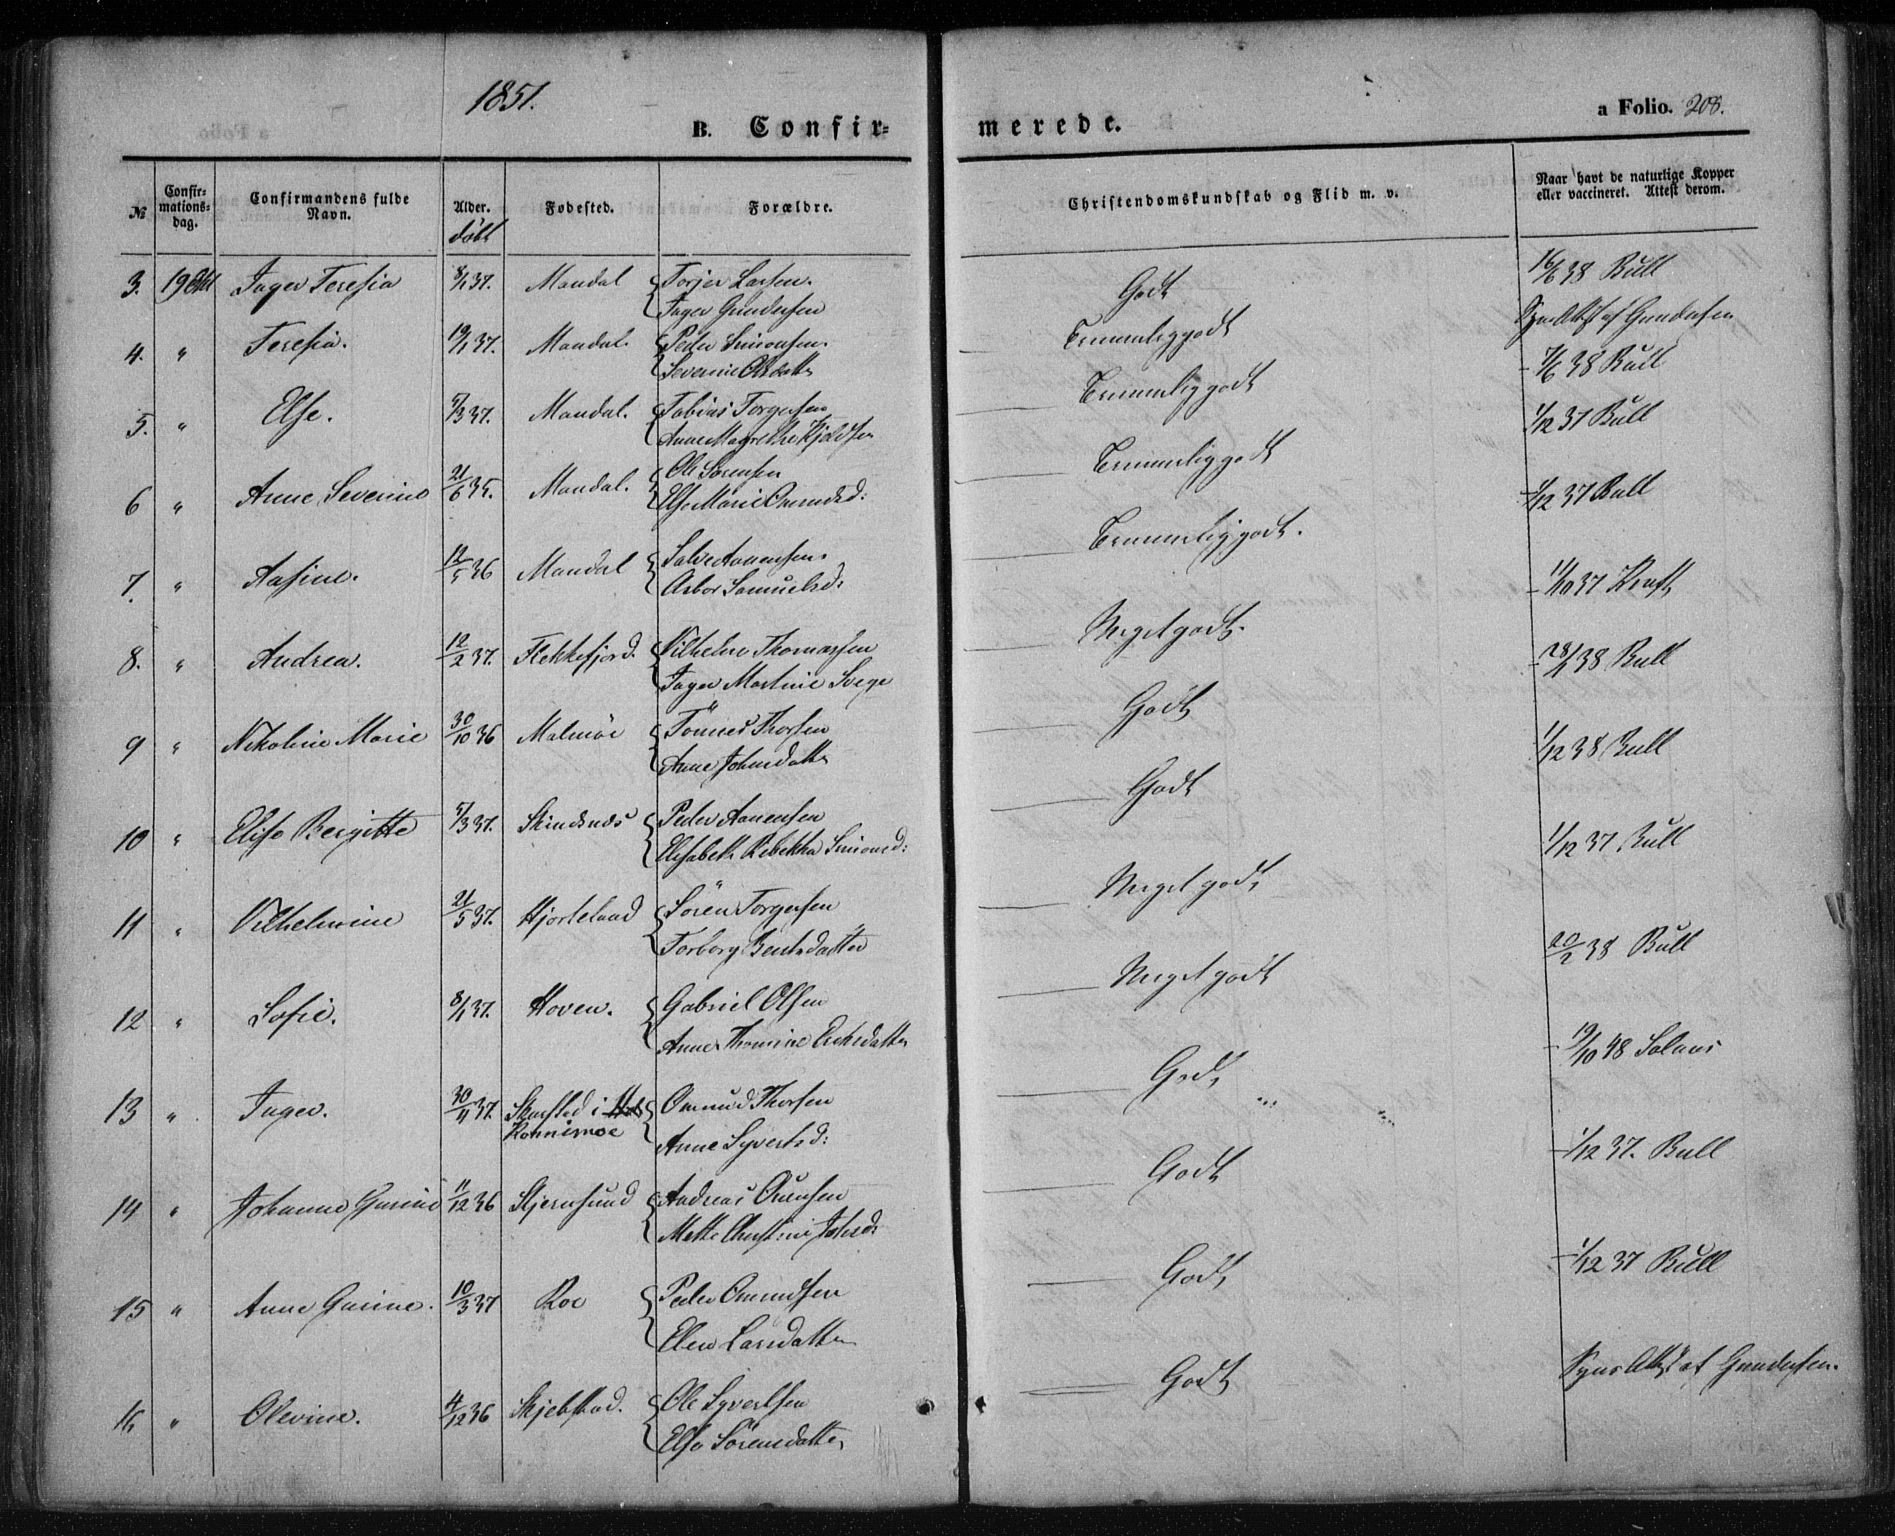 1851.
B. Confir= merede.
a Folio. 208.
№ Confir=mations=dag. Confirmandens fulde Navn. Alder. Fødested. Forældre. Christendomskundskab og Flid m. v. Naar havt de naturlige Kopper eller vaccineret. Attest derom.
døbt
3. 19 Oktb Inger Teresia 8/1 37. Mandal Torjer Larsen. Godt 16/6 38 Bull
Inger Gundersen
4. " Teresia. 19/1 37. Mandal. Peder Simonsen Temmelig godt Syns Attst af Gundersen
Severine Olsdatter
5. " Else. 5/3 37. Mandal. Tobias Torgersen Temmelig godt 7/6 38 Bull
Anne Magrethe Kjeldsen
6 " Anne Severine 21/6 35. Mandal. Ole Sørensen Temmelig godt 1/12 37 Bull
Else Marie Omundsd:
7. " Aasine. 12/5 36 Mandal Salve Aanensen Temmelig godt. 1/12 37 Bull
Asbor Samuelsd:
8. " Andrea. 12/2 37. Flekkefjord. Vilhelm Thomassen Meget godt. 11/10 37 Kraft
Inger Martine Svege
9 " Nikoline Marie 30/10 36 Malmöe Tönnes Thorsen Godt 28/1 38 Bull
Anne Johnsdatter
10 " Elise Bergitte 5/3 37. Skindsnes Peder Aanensen Godt 1/12 38 Bull
Elisabeth Rebekka Simonsd:
11 " Vilhelmine 21/5 37. Hjorteland Sören Torgersen Meget godt 1/12 37 Bull
Torborg Bentsdatter
12 " Sofie. 8/1 37. Hoven. Gabriel Olsen Meget godt 20/2 38 Bull
Anne Thomine Eriksdatter
13 " Inger. 30/4 37. Skarsted i Omund Thorsen Godt 19/10 48 Salaas
Konnismoe Anne Syvertsd:
14 " Johanne Gurine 11/12 36 Skjernsund Andreas Evensen Godt 1/12 37. Bull
Mette Christine Johnsd:
15 " Anne Gurine. 10/3 37 Roe Peder Omundsen Godt 1/12 37 Bull
Elen Larsdatter
16 " Olevine. 4/12 36 Skjebstad. Ole Syvertsen Godt Syns Attst af Gundersen.
Else Sörensdatter